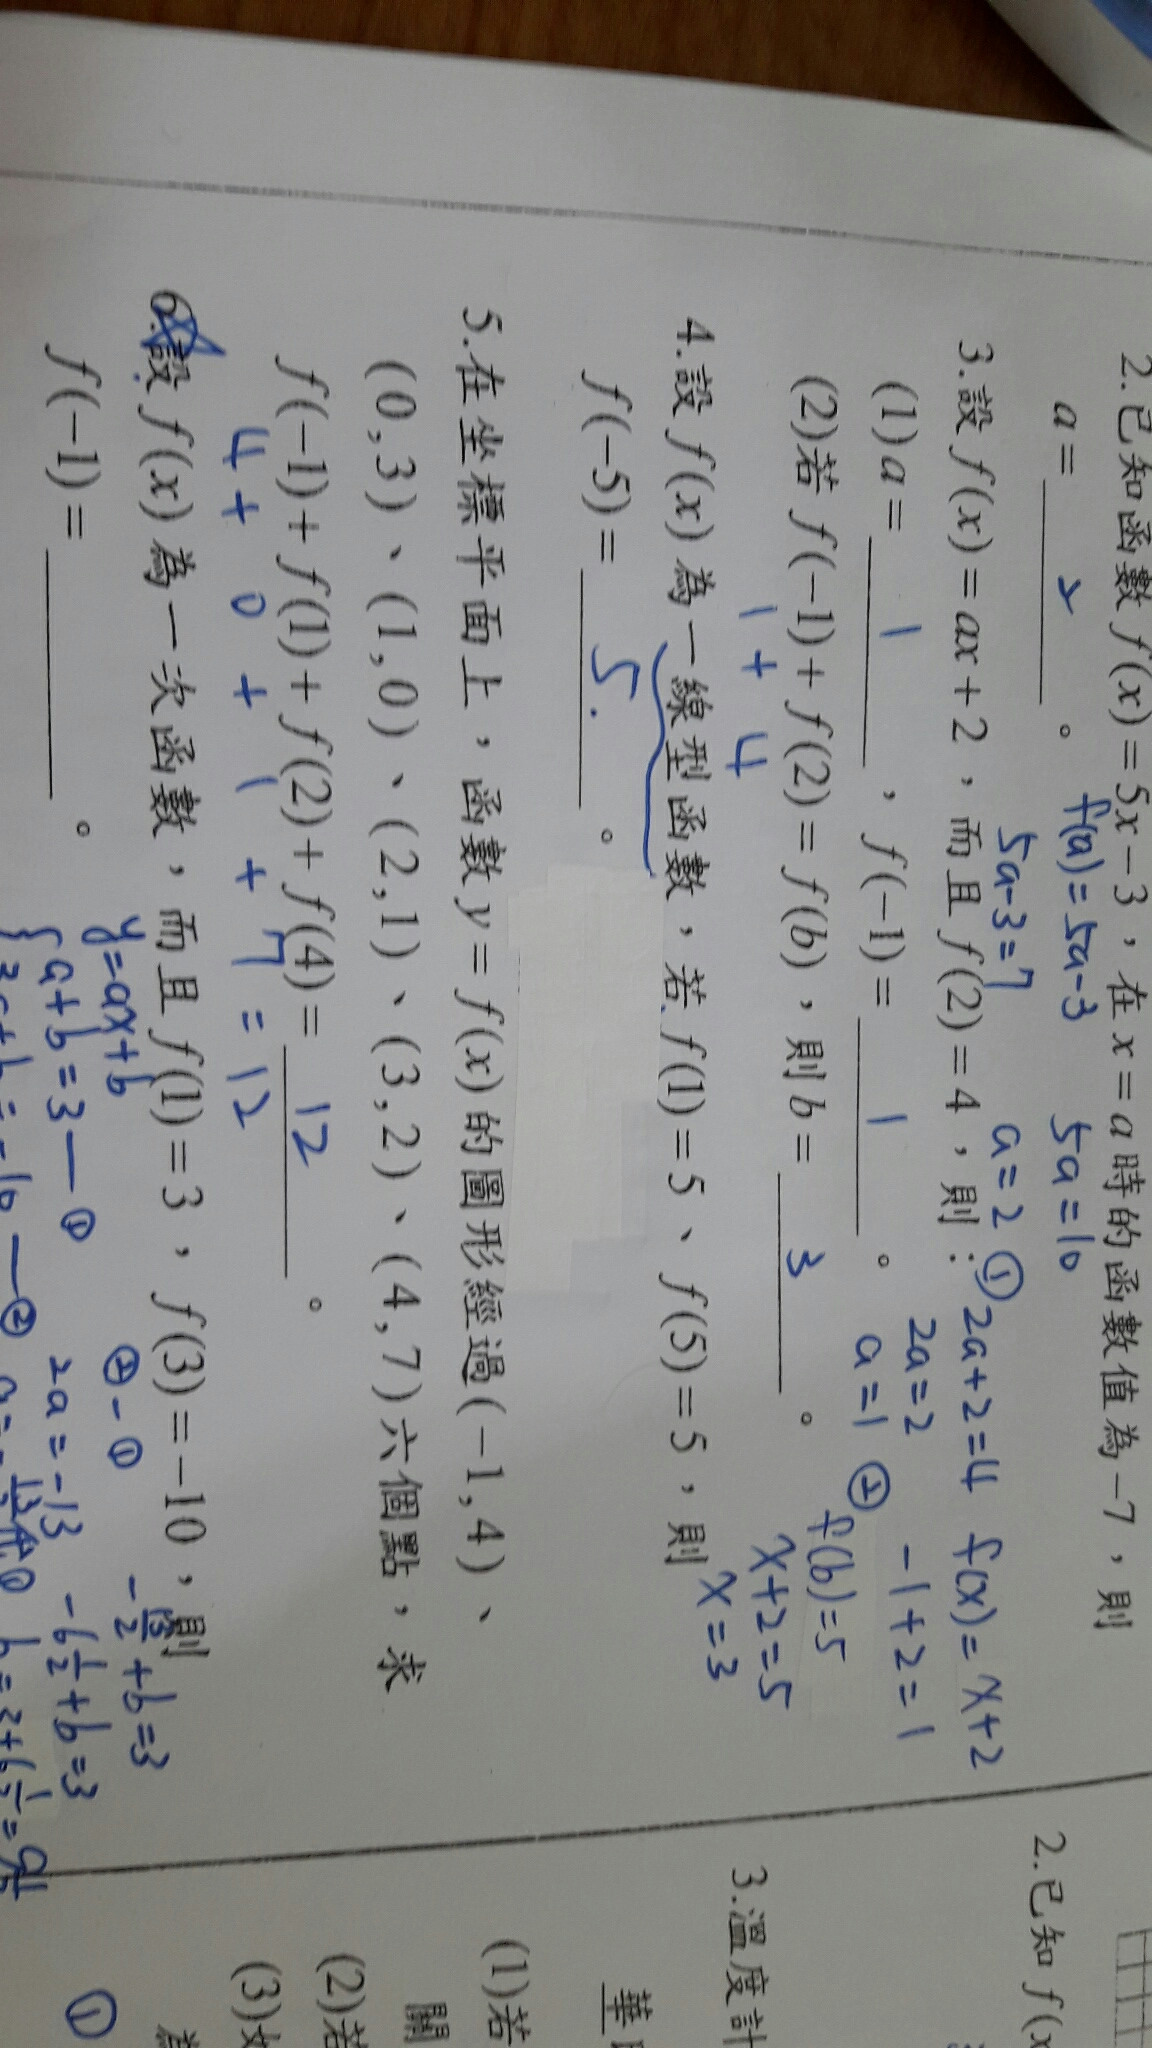 2.已知函數 f(x)=5x-3,在 x=a 時的函數值為-7,則
a= 2 。 f(a)=5a-3 5a=10
5a-3=7 a=2
3.設 f(x)=ax+2,而且 f(2)=4,則:
① 2a+2=4 f(x)=x+2
(1)a= 1 ,f(-1)= 1 。
2a=2 -1+2=1
a=1
(2)若 f(-1)+f(2)=f(b),則 b= 3 。
1 + 4
② f(b)=5
x+2=5
x=3
4.設 f(x) 為一線型函數,若 f(1)=5、f(5)=5,則
f(-5)= 5. 。
5.在坐標平面上,函數 y=f(x) 的圖形經過(-1,4)、
(0,3)、(1,0)、(2,1)、(3,2)、(4,7)六個點,求
f(-1)+f(1)+f(2)+f(4)= 12 。
4 + 0 + 1 + 7 = 12
6.設 f(x) 為一次函數,而且 f(1)=3,f(3)=-10,則
f(-1)= 。
y=ax+b ②-① -13/2+b=3
a+b=3—① 2a=-13 -6 1/2+b=3
2.已知 f(x
3.溫度計
(1)若
關
(2)若
(3)如
①